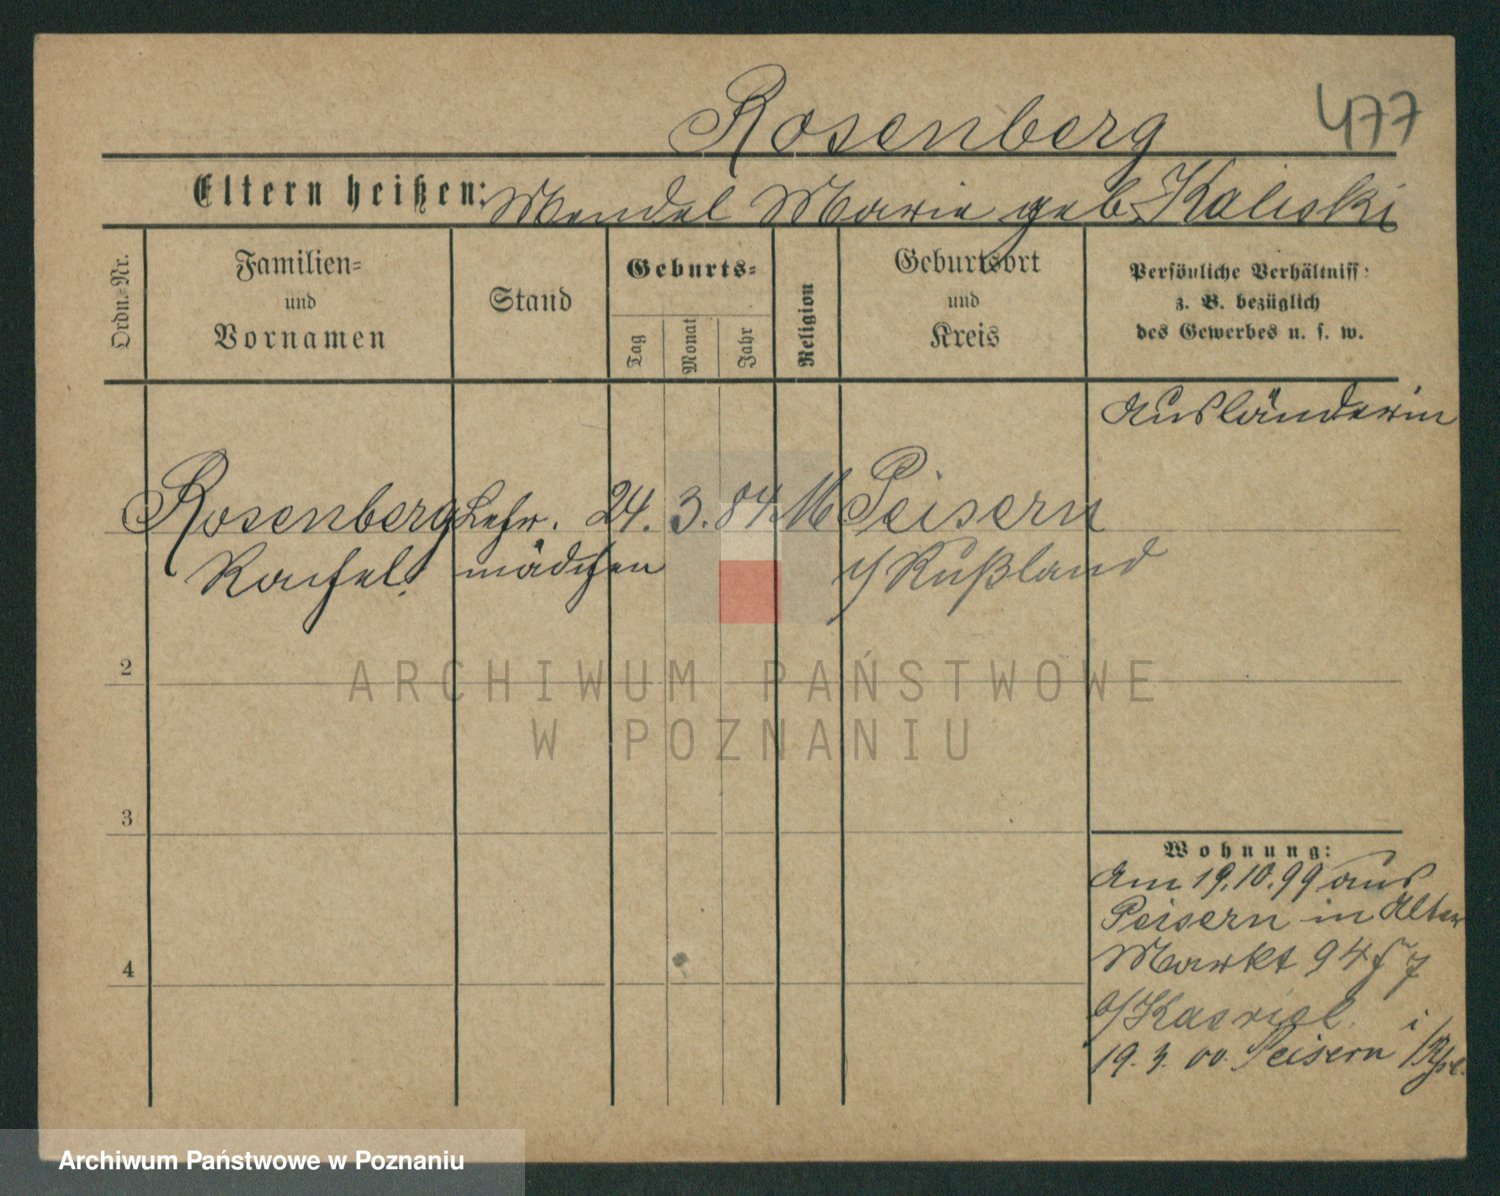 477
Rosenberg
Eltern heißen: Mendel Marie geb. Kaliski
Ordn.-Nr.
Familien=
und
Vornamen
Stand
Geburts=
Tag
Monat
Jahr
Religion
Geburtsort
und
Kreis
Persönliche Verhältniss:
z. B. bezüglich
des Gewerbes u. s. w.
Ausländerin
Rosenberg Lehr. 24. 3. 84. M Peisern
Rachel. mädchen i/Rußland
2
3
4
Wohnung:
Am 19.10.99 aus
Peisern in Alter
Markt 94
b/Kasriel.
19. 3. 00. Peisern
ARCHIWUM PAŃSTWOWE
W POZNANIU
Archiwum Państwowe w Poznaniu